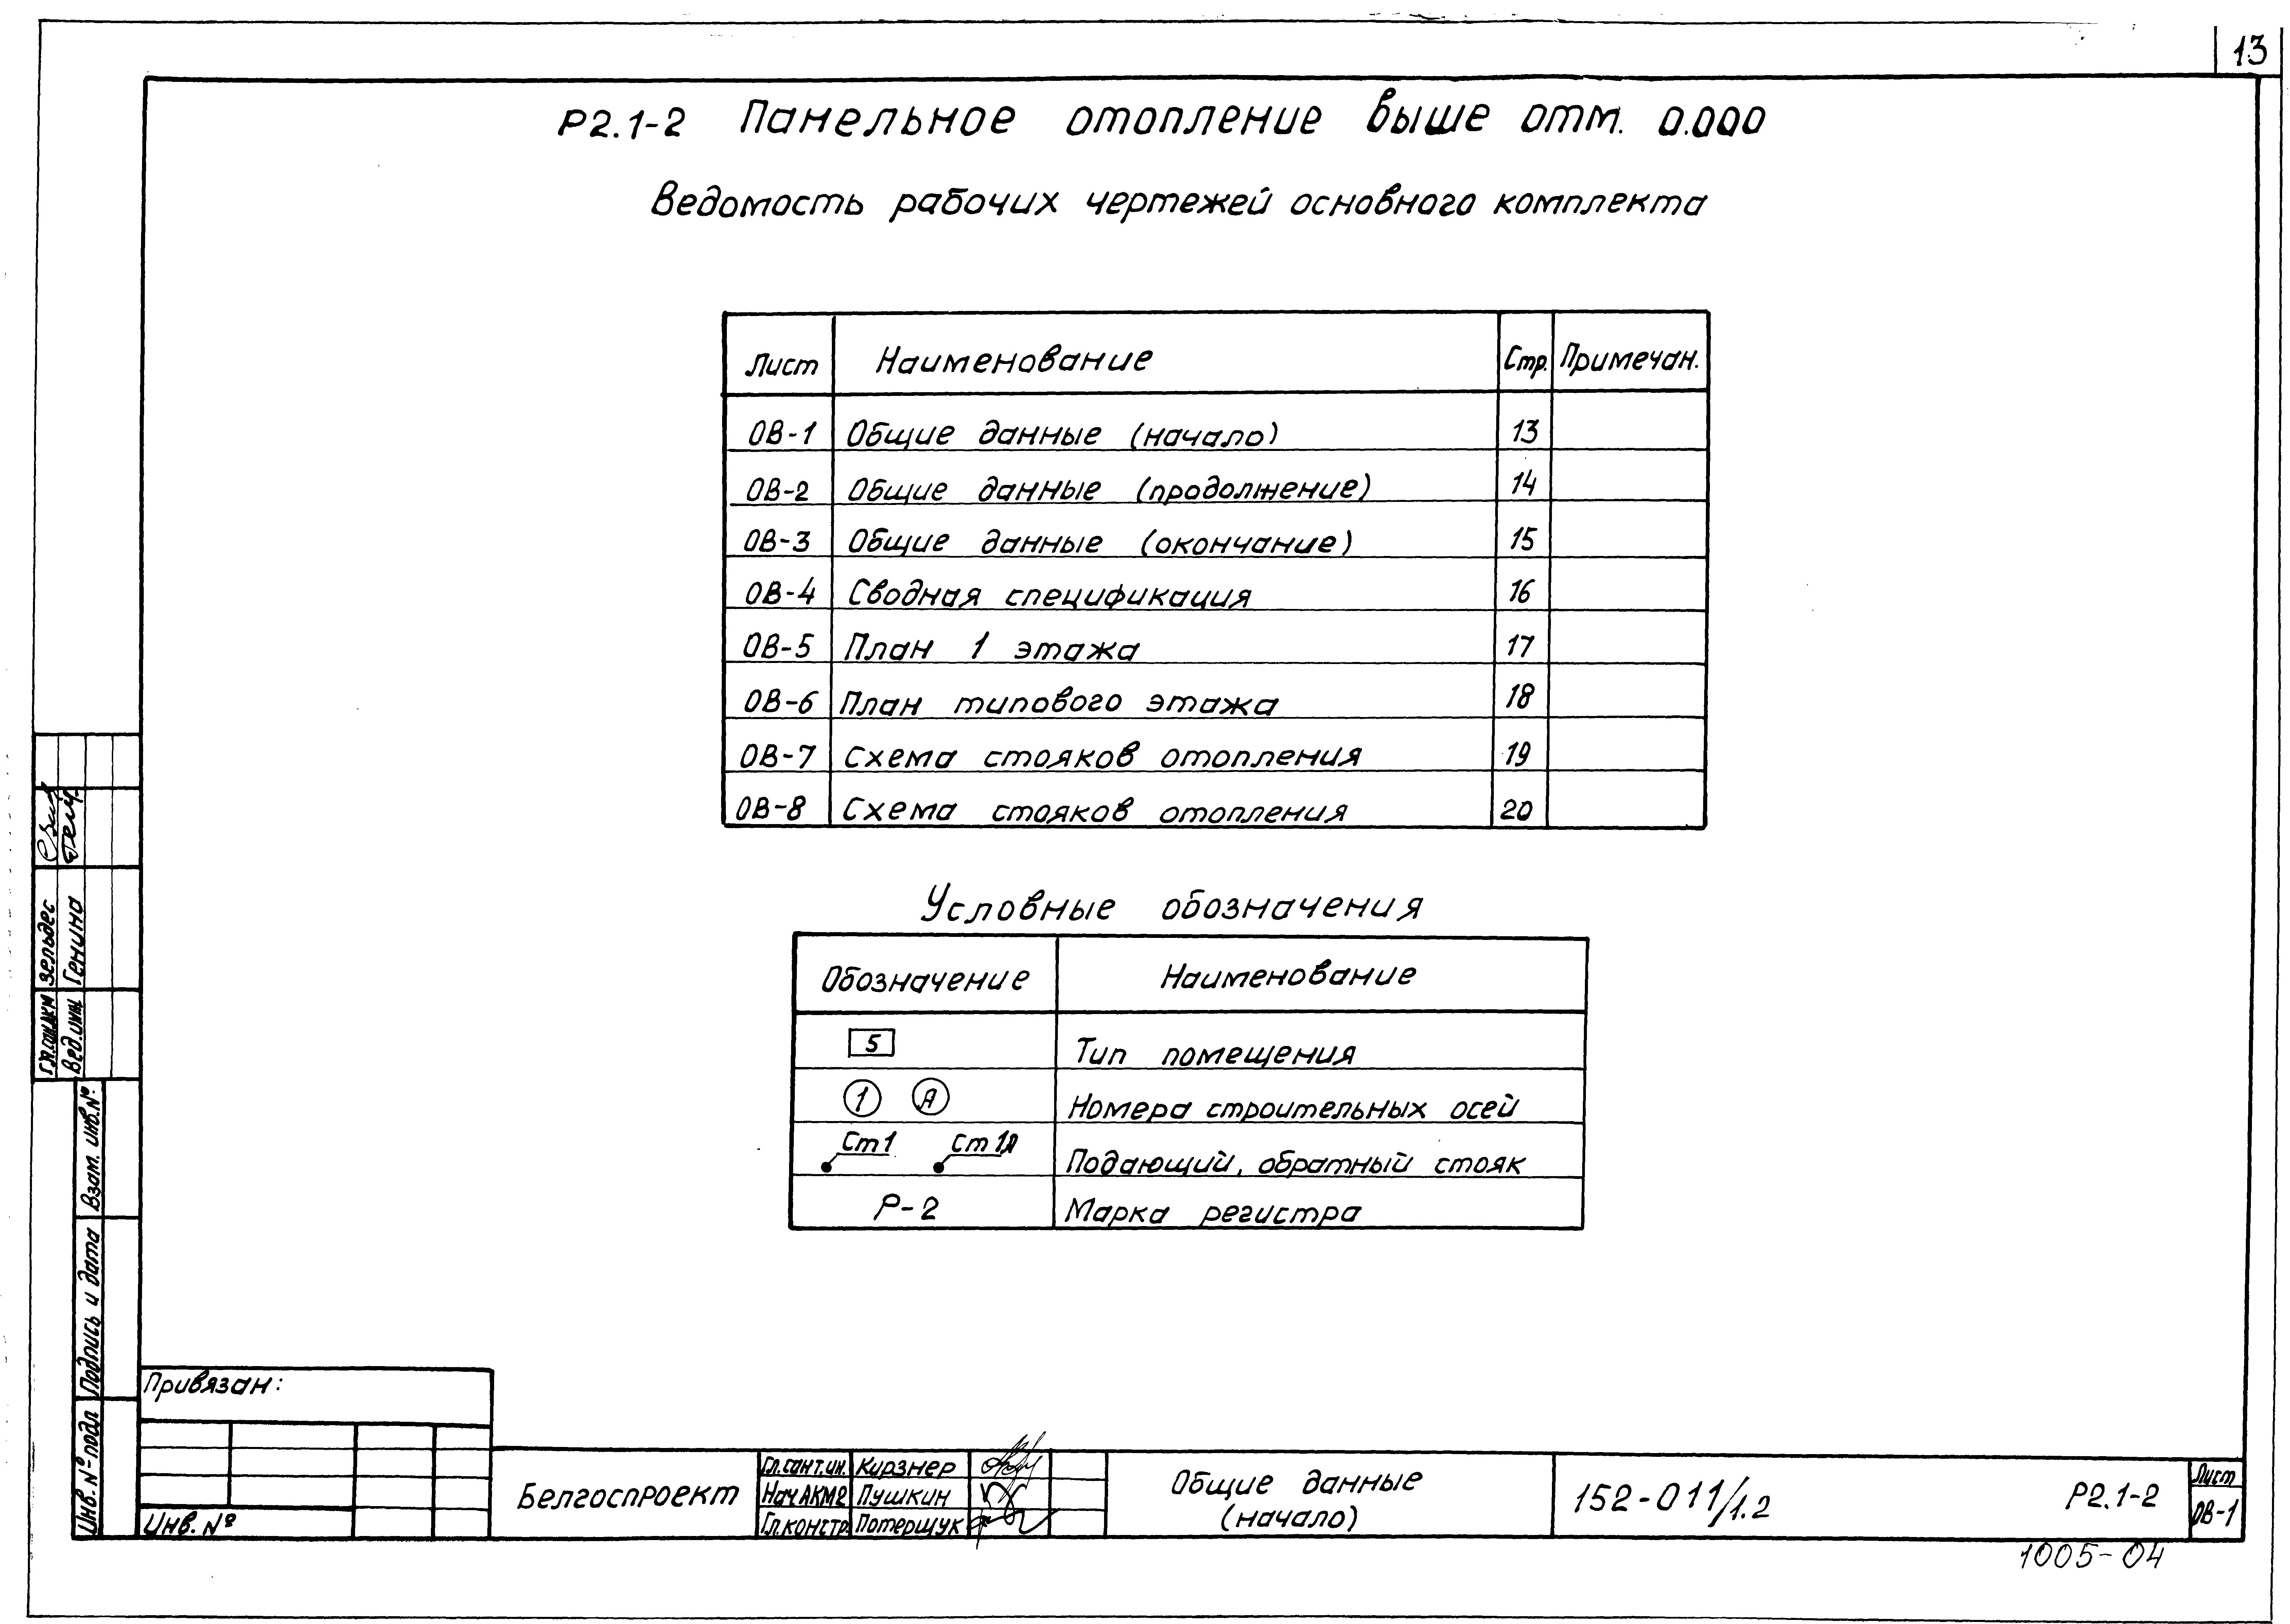 13
Р2.1-2 Панельное отопление выше отм. 0.000
Ведомость рабочих чертежей основного комплекта
Лист Наименование Стр. Примечан.
ОВ-1 Общие данные (начало) 13
ОВ-2 Общие данные (продолжение) 14
ОВ-3 Общие данные (окончание) 15
ОВ-4 Сводная спецификация 16
ОВ-5 План 1 этажа 17
ОВ-6 План типового этажа 18
ОВ-7 Схема стояков отопления 19
ОВ-8 Схема стояков отопления 20
Условные обозначения
Обозначение Наименование
5 Тип помещения
1 А Номера строительных осей
Ст1 Ст 1А Подающий, обратный стояк
Р-2 Марка регистра
Зельдес
Вед.инж. Генина
Взам. инв.№
Подпись и дата
Инв.№ подл
Привязан:
Инв. №
Белгоспроект
Гл.сант.ин. Курзнер
Нач АКМ2 Пушкин
Гл.констр. Потерщук
Общие данные
(начало)
152-011/1.2
Р2.1-2
Лист
ОВ-1
1005-04